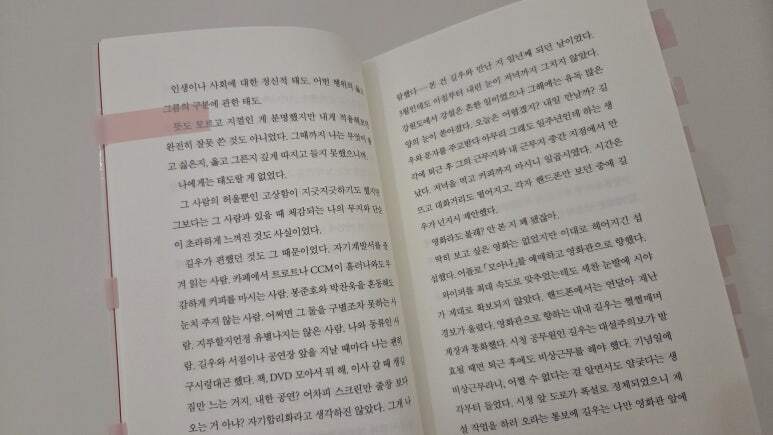 인생이나 사회에 대한 정신적 태도. 어떤 행위의 옳고
그름의 구분에 관한 태도.
뜻도 모르고 지껄인 게 분명했지만 내게 적용해보면
완전히 잘못 쓴 것도 아니었다. 그때까지 나는 무엇이
고 싶은지, 옳고 그른지 깊게 따지고 들지 못했으니까.
나에게는 태도랄 게 없었다.
그 사람의 허울뿐인 고상함이 지긋지긋하기도 했지만
그보다는 그 사람과 있을 때 체감되는 나의 무지와
이 초라하게 느껴진 것도 사실이었다.
길우가 편했던 것도 그 때문이었다. 자기계발서를
겨 읽는 사람. 카페에서 트로트나 CCM이 흘러나와도
감하게 커피를 마시는 사람. 봉준호와 박찬욱을 혼동해도
눈치 주지 않는 사람. 어쩌면 그 둘을 구별조차 못하는 사
람. 지루할지언정 유별나지는 않은 사람. 나와 동류인 사
람. 길우와 서점이나 공연장 앞을 지날 때마다 나는 괜히
구시렁대곤 했다. 책, DVD 모아서 뭐 해, 이사 갈 때
짐만 느는 거지. 내한 공연? 어차피 스크린만 줄창 보다
오는 거 아냐? 자기합리화라고 생각하진 않았다. 그게 나
람했다―본 건 길우와 만난 지 일년째 되던 날이었다.
3월인데도 아침부터 내린 눈이 저녁까지 그치지 않았다.
강원도에서 강설은 흔한 일이었으나 그해에는 유독 많은
양의 눈이 쏟아졌다. 오늘은 어렵겠지? 내일 만날까? 길
우와 문자를 주고받다 아무리 그래도 일주년인데 하는 생
각에 퇴근 후 그의 근무지와 내 근무지 중간 지점에서 만
났다. 저녁을 먹고 커피까지 마시니 일곱시였다. 시간은
뜨고 대화거리도 떨어지고, 각자 핸드폰만 보던 중에 길
우가 넌지시 제안했다.
영화라도 볼래? 안 본 지 꽤 됐잖아.
딱히 보고 싶은 영화는 없었지만 이대로 헤어지긴 섭
섭했다. 어플로 「모아나」를 예매하고 영화관으로 향했다.
와이퍼를 최대 속도로 맞추었는데도 세찬 눈발에 시야
가 제대로 확보되지 않았다. 핸드폰에서는 연달아 재난
경보가 울렸다. 영화관으로 향하는 내내 길우는 쩔쩔매며
계장과 통화했다. 시청 공무원인 길우는 대설주의보가 발
효될 때면 퇴근 후에도 비상근무를 해야 했다. 기념일에
비상근무라니, 어쩔 수 없다는 걸 알면서도 얄궂다는 생
각부터 들었다. 시청 앞 도로가 폭설로 정체되었으니 제
설 작업을 하러 오라는 통보에 길우는 나만 영화관 앞에